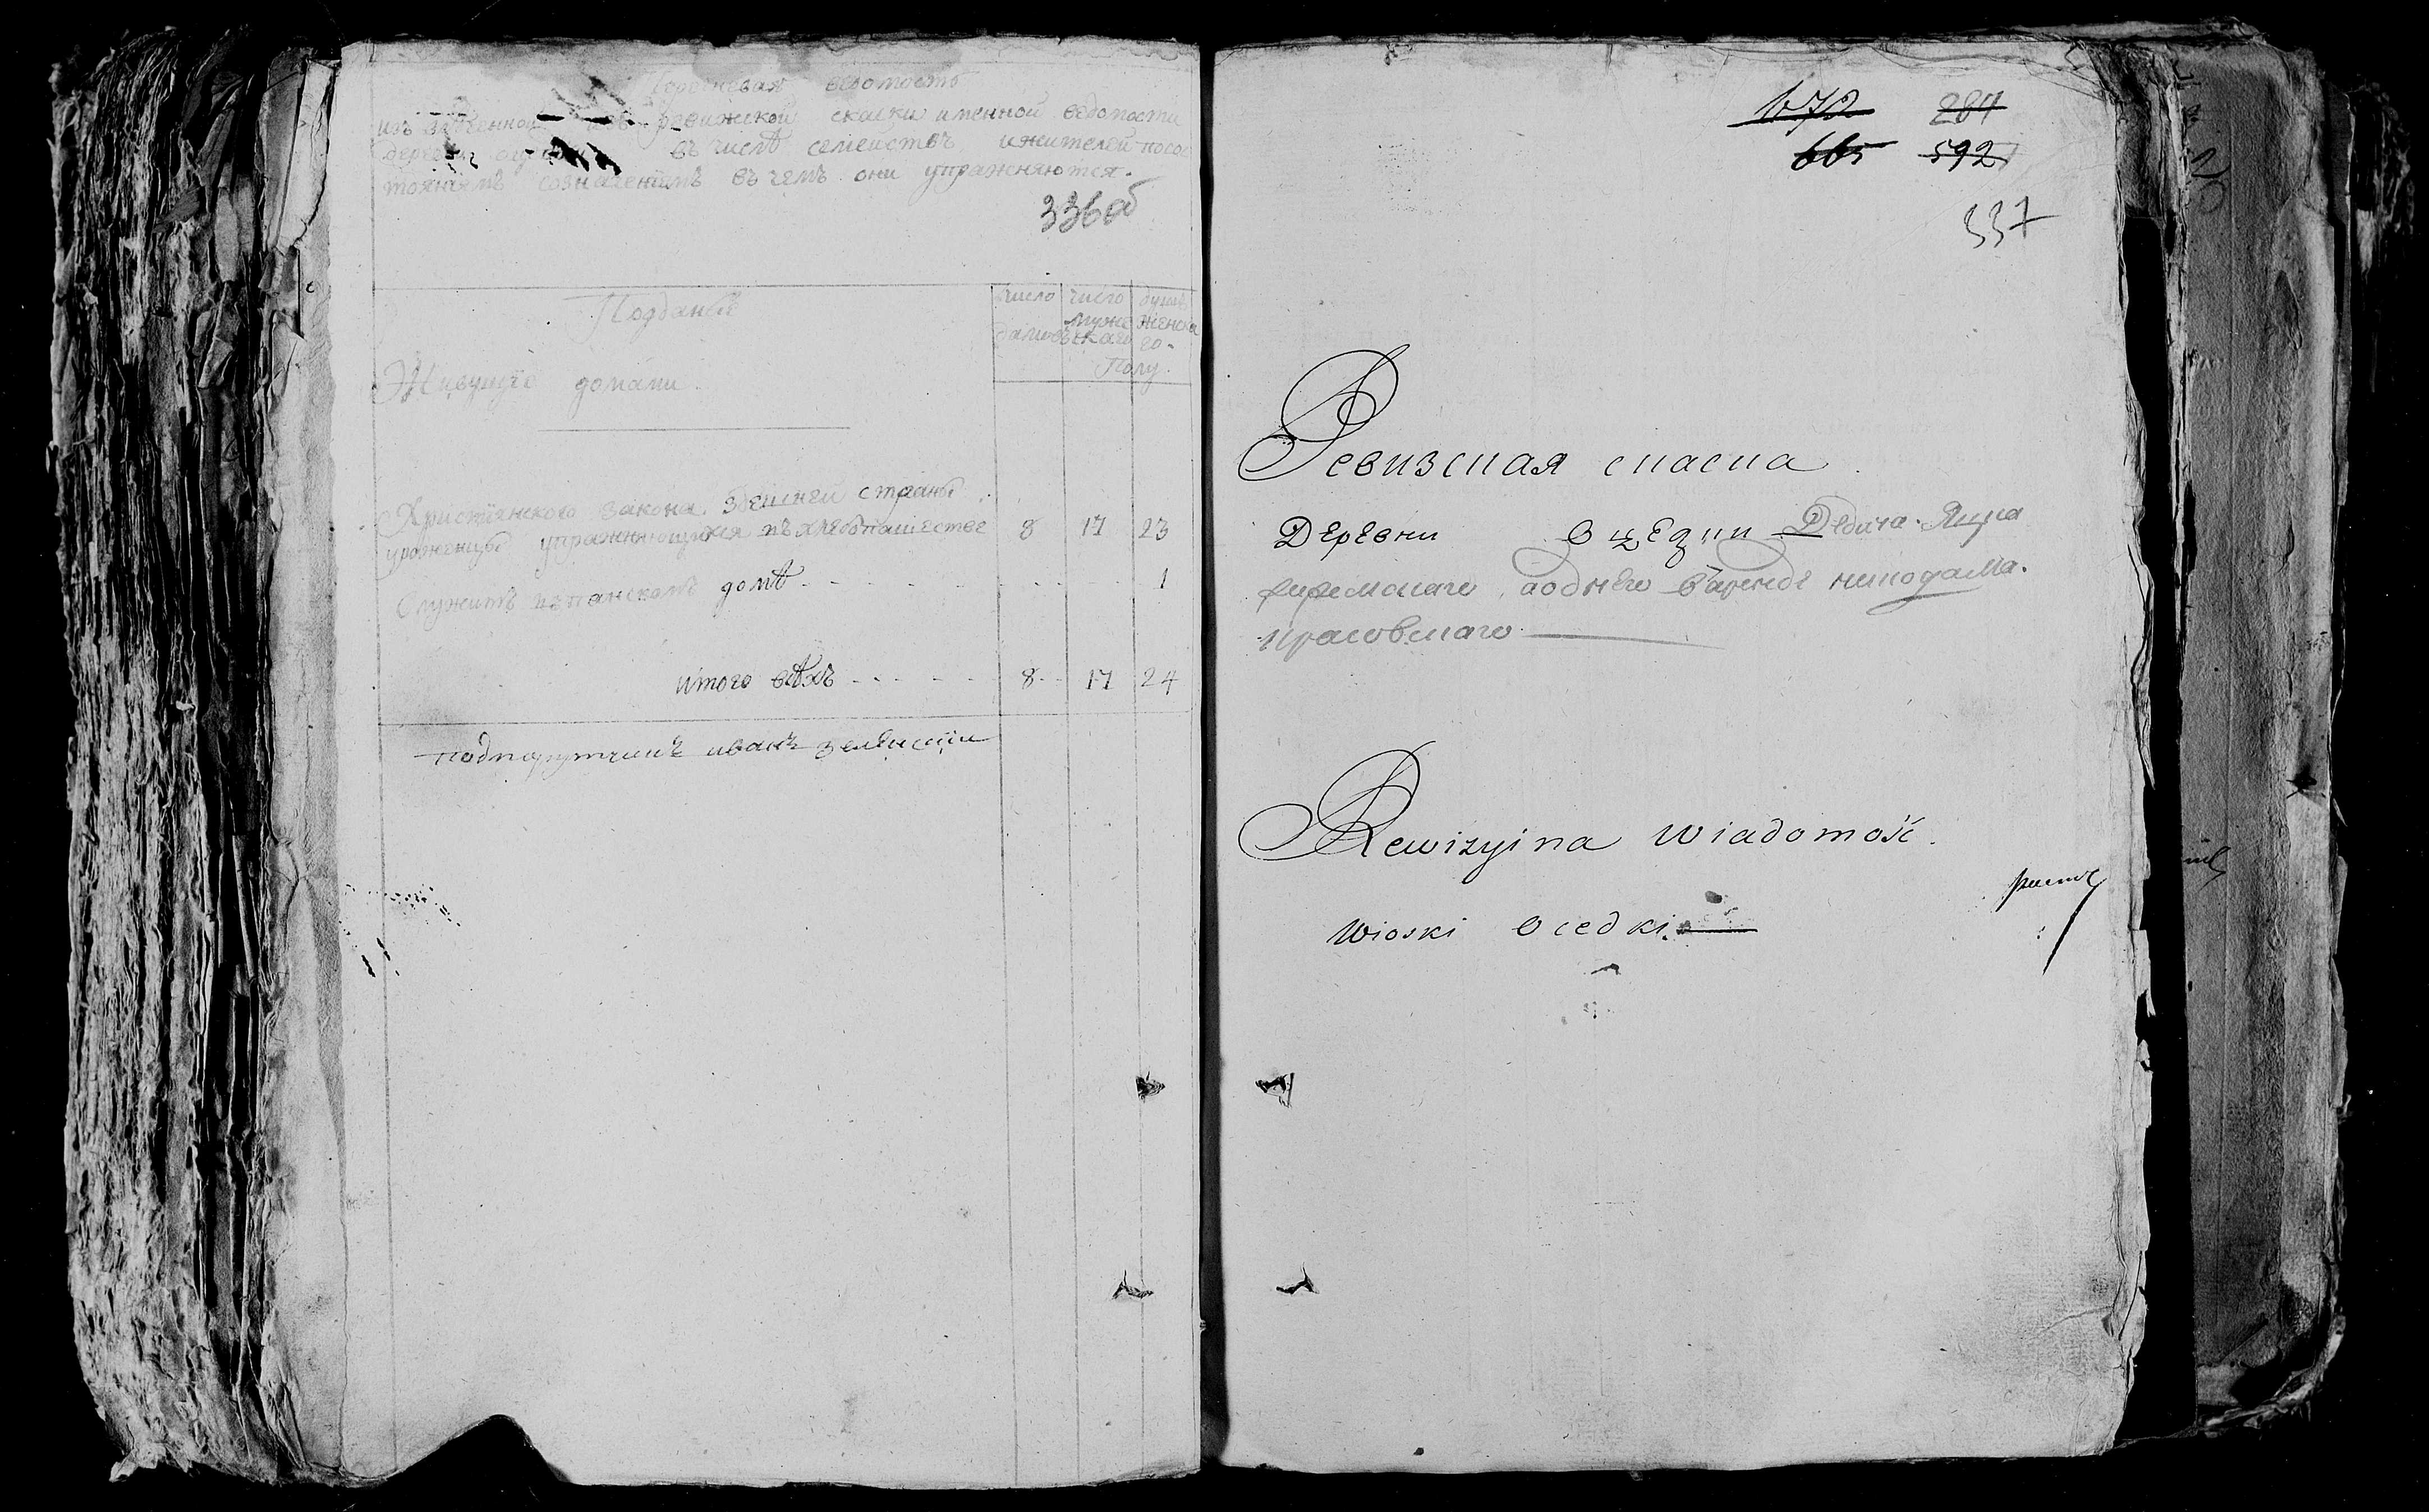 Перечневая ведомость
ревижской скаски именной ведомости
въ числѣ семействъ, ижителей посос
тояниямъ созначениемъ въ чемъ они упражняются.
336 об
Подданые
число число душъ
муже женска
скаго го.
Полу.
Живущие домами.
Християнского закона здешней страны
уроженцы упражняющихся въ хлебопашестве 8 17 23
Служитъ въ панскомъ домѣ 1
итого всѣхъ 8 17 24
подпорутчикъ иванъ зеленский
672 284
665 592
337
Ревизская скаска
Деревни Оцедки Дедича Яцка
аоднего варенде никодима
красовскаго
Rewizyina wiadomość.
wioski Ocedki